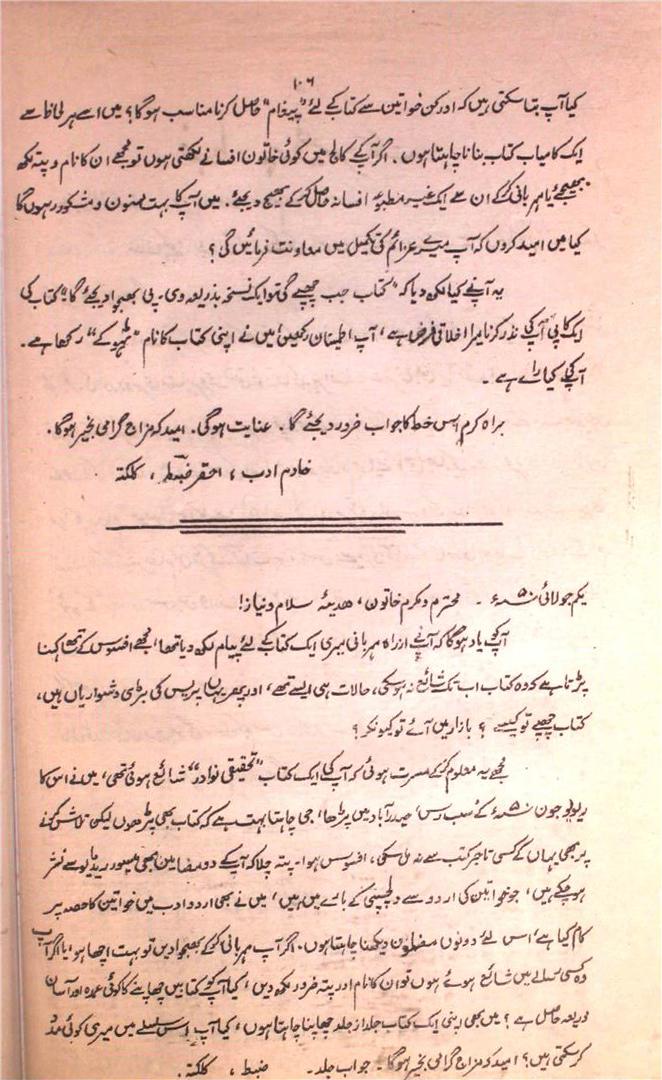 ۱۰۶
کیا آپ بتا سکتی ہیں کہ اور کن خواتین سے کتاب کے لئے "پیغام" حاصل کرنا مناسب ہوگا؟ میں اسے ہر لحاظ سے
ایک کامیاب کتاب بنانا چاہتا ہوں۔ اگر آپ کے کالج میں کوئی خاتون افسانے لکھتی ہوں تو مجھے ان کا نام و پتہ لکھ
بھیجئے یا مہربانی کر کے ان سے ایک غیر مطبوعہ افسانہ حاصل کر کے بھیج دیجئے۔ میں آپ کا بہت ممنون و مشکور رہوں گا
کیا میں امید کروں کہ آپ میرے عزائم کی تکمیل میں معاونت فرمائیں گی؟
یہ آپ نے کیا لکھ دیا کہ "کتاب جب چھپے گی تو ایک نسخہ بذریعہ وی۔ پی بھجوا دیجئے گا" کتاب کی
ایک کاپی آپ کی نذر کرنا میرا اخلاقی فرض ہے، آپ اطمینان رکھیں! میں نے اپنی کتاب کا نام "ٹہوکے" رکھا ہے۔
آپ کی کیا رائے ہے۔
براہ کرم اس خط کا جواب ضرور دیجئے گا۔ عنایت ہوگی۔ امید کہ مزاج گرامی بخیر ہوگا۔
خادم ادب، احقر ضبط، کلکتہ
یکم جولائی ۵۰ء ۔ محترم و مکرم خاتون، ھدیۂ سلام و نیاز!
آپ کو یاد ہوگا کہ آپ نے از راہ مہربانی میری ایک کتاب کے لئے پیام لکھ دیا تھا، مجھے افسوس کے ساتھ کہنا
پڑتا ہے کہ وہ کتاب اب تک شائع نہ ہو سکی، حالات ہی ایسے تھے، اور پھر یہاں پریس کی بڑی دشواریاں ہیں،
کتاب چھپے تو کیسے؟ بازار میں آئے تو کیونکر؟
مجھے یہ معلوم کر کے مسرت ہوئی کہ آپ کی ایک کتاب "تحقیقی نوادر" شائع ہوئی تھی، میں نے اس کا
ریویو جون ۵۰ء کے سب رس، حیدرآباد میں پڑھا، جی چاہتا بہت ہے کہ کتاب بھی پڑھوں لیکن تلاش کرنے
پر بھی یہاں کے کسی تاجر کتب سے نہ مل سکی، افسوس ہوا۔ پتہ چلا کہ آپ کے دو مضامین بھی میسور ریڈیو سے نشر
ہو چکے ہیں، جو خواتین کی اردو سے دلچسپی کے بارے میں ہیں، میں نے بھی اردو ادب میں خواتین کا حصہ پر
کام کیا ہے، اس لئے دونوں مضمون دیکھنا چاہتا ہوں۔ اگر آپ مہربانی کر کے بھجوا دیں تو بہت اچھا ہو یا اگر آپ
وہ کسی رسالے میں شائع ہوئے ہوں تو ان کا نام اور پتہ ضرور لکھ دیں، کیا آپ کو کتابیں چھاپنے کا کوئی عمدہ اور آسان
ذریعہ حاصل ہے؟ میں بھی اپنی ایک کتاب جلد از جلد چھاپنا چاہتا ہوں، کیا آپ اس سلسلے میں میری کوئی مدد
کر سکتی ہیں؟ امید کہ مزاج گرامی بخیر ہوگا۔ جواب جلد۔ ضبط، کلکتہ۔